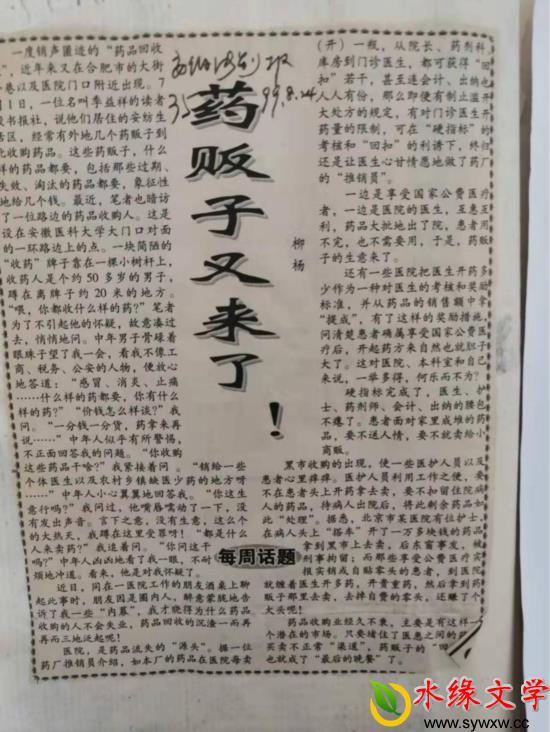 药贩子又来了!
柳杨
99.8.24
每周话题
一度销声匿迹的“药品回收
,近年来又在合肥市的大街
巷以及医院门口附近出现。7
月1日,一位名叫李益祥的读者
报书报社,说他们居住的安纺生
活区,经常有外地几个药贩子到
此收购药品。这些药贩子,什么
样的药品都要,包括那些过期、
失效、淘汰的药品都要,象征性
地给几个钱。最近,笔者也暗访
了一位路边的药品收购人。这是
设在安徽医科大学大门口对面
的一环路边上的点。一块简陋的
“收药”牌子靠在一棵小树杆上,
收药人是个约50多岁的男子,
蹲在离牌子约20米的地方。
“喂,你都收什么样的药?”笔者
为了不引起他的怀疑,故意凑过
去,悄悄地问。中年男子骨碌着
眼珠子望了我一会,看我不像工
商、税务、公安的人物,便放心
地答道:“感冒、消炎、止痛
……什么样的药都要,你有什么
样的药?”“价钱怎么样谈?”我
问。“一分钱一分货,药拿来再
说……”中年人似乎有所警惕,
不正面回答我的问题。“你收购
这些药品干啥?”我紧接着问。“销给一些
个体医生以及农村乡镇缺医少药的地方呀
……”中年人小心翼翼地回答我。“你这生
意行吗?”我问过,他嘴唇嚅动了一下,没
有发出声音。言下之意,没有生意,这么个
的大热天,我蹲在这里受罪呀!“都是什么
人来卖药?”我追着问。“你问这干
吗?”中年人凶凶地看了我一眼,不耐
烦地冲道。看来,他是对我怀疑了。
近日,同在一医院工作的朋友酒桌上聊
起此事时,朋友因是圈内人,醉意朦胧地告
诉了我一些“内幕”,我才晓得为什么药品
收购的人不会失业,药品回收的沉渣一而再
再而三地泛起呢!
医院,是药品流失的“源头”。据一位
药厂推销员介绍,如本厂的药品在医院每卖
(开)一瓶,从院长、药剂科
库房到门诊医生,都可获得“回
扣”若干,甚至连会计、出纳也
人人有份,那么即便有制止滥开
大处方的规定,有对门诊医生开
药量的限制,可在“硬指标”的
考核和“回扣”的利诱下,终归
还是让医生心甘情愿地做了药厂
的“推销员”。
一边是享受国家公费医疗
者,一边是医院的医生,互惠互
利,药品大批地出了院,患者用
不完,也不需要用,于是,药贩
子的生意来了。
还有一些医院把医生开药多
少作为一种对医生的考核和奖励
标准,并从药品的销售额中拿
“提成”,有了这样的奖励措施,
问清楚患者确属享受国家公费医
疗后,开起药方来自然也就胆子
大了。这对医院、本科室和自己
来说,一举多得,何乐而不为?
硬指标完成了,医生、护
士、药剂师、会计、出纳的腰包
不瘪了。患者面对家里成堆的药
品,要不送人情,要不就卖给小
商贩。
黑市收购的出现,使一些医护人员以及
患者心里痒痒。医护人员利用工作之便,要
不在患者头上开药拿去卖,要不扣留住院病
人的药品,待病人出院后,将此剩余药品如
此“处理”。据悉,北京市某医院有位护士,
在病人头上“搭车”开了一万多块钱的药品
拿到黑市上去卖,后东窗事发,被
刑事拘留;而那些享受公费医疗实
报实销或自贴零头的患者,到医院
就缠着医生开多药、开贵重药,然后拿到药
贩子那里去卖,去掉自费的拿头,还赚了个
大头呢!
药品收购业经久不衰,主要是有这样一
个潜在的市场。只要堵住了医患之间的药
买卖不正常“渠道”,药贩子的“回
也就成了“最后的晚餐”了。
水缘文学
www.sywxw.cc